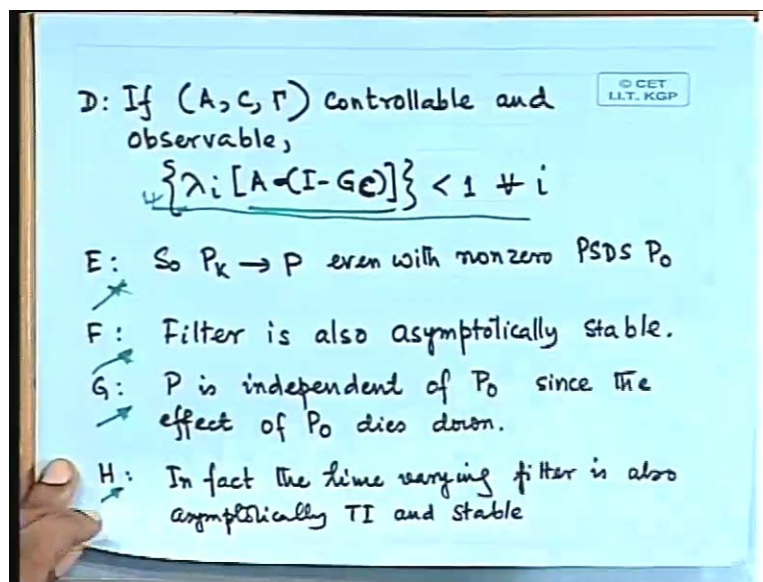 © CET
I.I.T. KGP
D: If (A, C, Γ) controllable and
observable,
{λi [A-(I-GC)]} < 1 ∀ i
E: So PK → P even with nonzero PSDS P0
F: Filter is also asymptotically stable.
G: P is independent of P0 since the
effect of P0 dies down.
H: In fact the time varying filter is also
asymptotically TI and stable